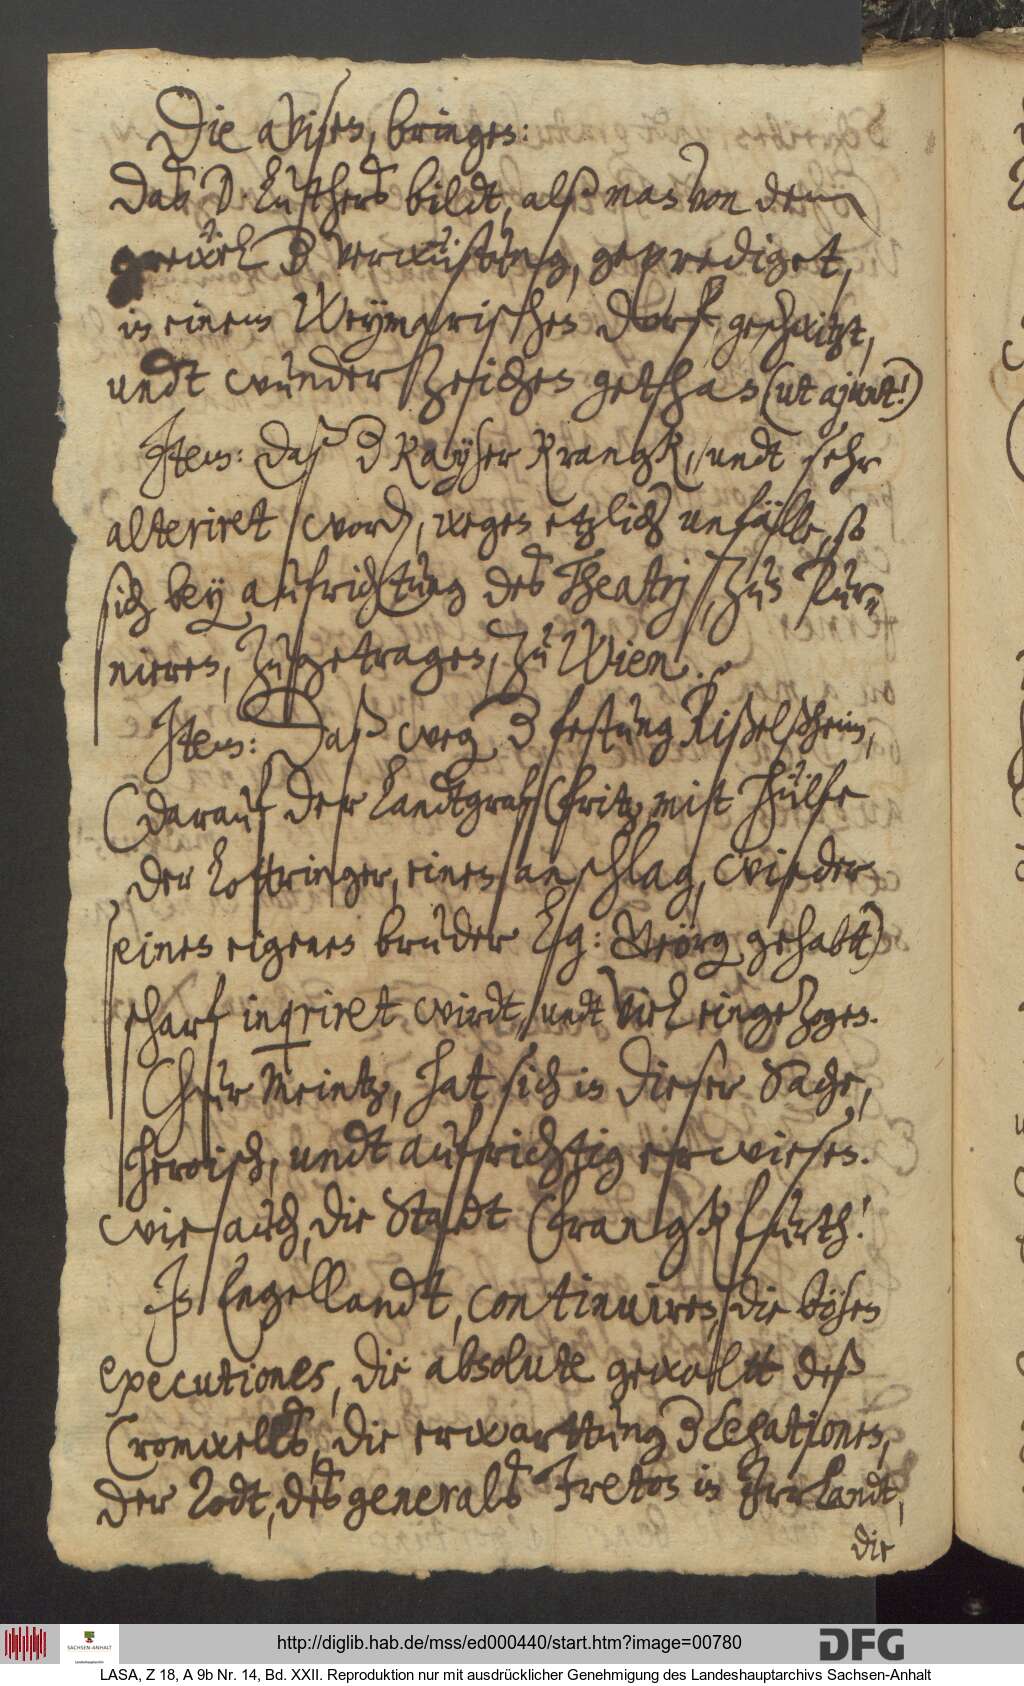 Die avisen, bringen:
Daß D Luthers bildt, alß man von dem
grewel der verwüstung, geprediget,
in einem Weymarischen dorf, geschwitzt,
undt wunder Zeichen gethan (ut ajunt!)
Item: Daß der Kayser Krangk, undt sehr
alteriret worden, wegen etzlicher unfälle, so
sich bey aufrichtung des Theatrj, zum Tur-
nieren, zugetragen, zu Wien.
Item: Daß wegen der festung Rißelßheim,
(darauf der Landtgraf Fritz, mitt hülfe
der Lottringer, einen anschlag, wieder
seinen eigenen bruder Lg: Geörg gehabtt)
scharf inqriret wirdt, undt viel eingezogen.
Chur Meintz, hat sich in dieser Sache,
heroisch, undt aufrichtig erwiesen.
wie auch, die Stadt Frangkfurth!
In Engellandt, continuiren, die bösen
executiones, die absolute gewaltt deß
Cromwells, die erwarttung der Legationen,
der Todt, des generals Iretons in Irrlandt,
die
http://diglib.hab.de/mss/ed000440/start.htm?image=00780
DFG
SACHSEN-ANHALT
LASA, Z 18, A 9b Nr. 14, Bd. XXII. Reproduktion nur mit ausdrücklicher Genehmigung des Landeshauptarchivs Sachsen-Anhalt